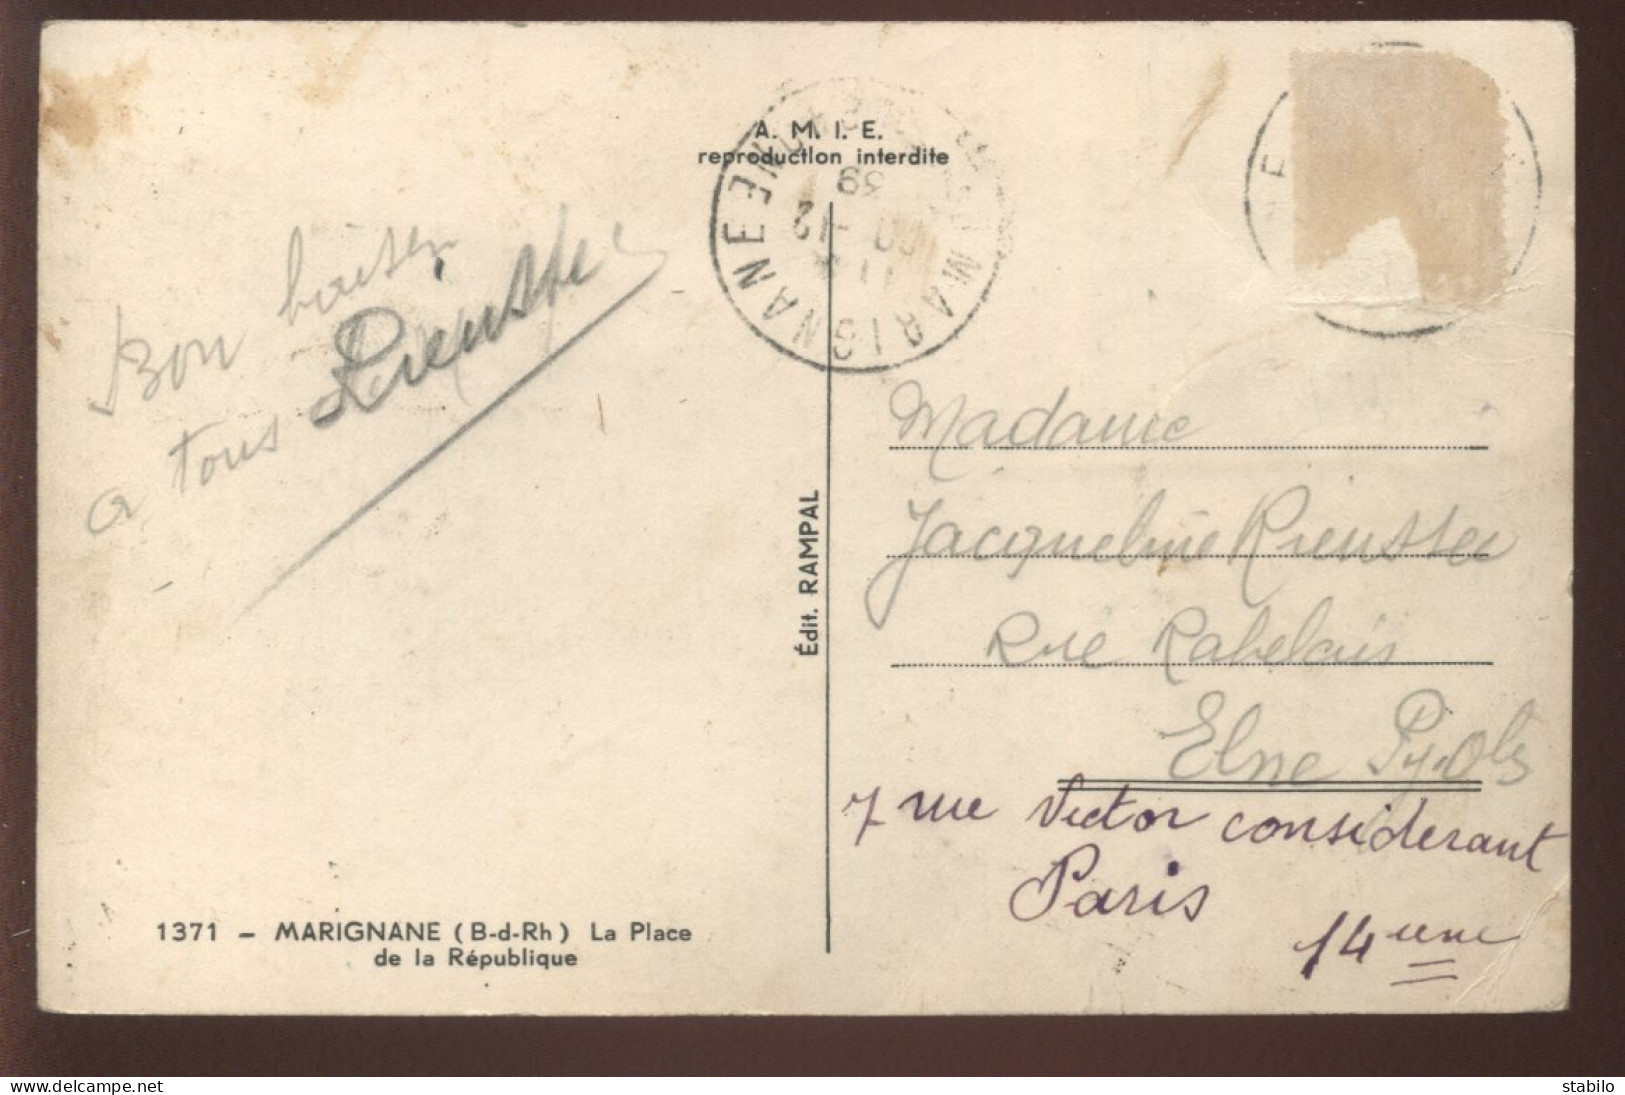 A. M. I. E.
reproduction interdite
MARIGNANE
11
-12
39
E
Bon baiser
a tous Rieusse
Édit. RAMPAL
Madame
Jacqueline Rieussec
Rue Rabelais
Elne Py-Oles
7 rue Victor considerant
Paris
14 eme
1371 - MARIGNANE (B-d-Rh) La Place
de la République
www.delcampe.net
stabilo